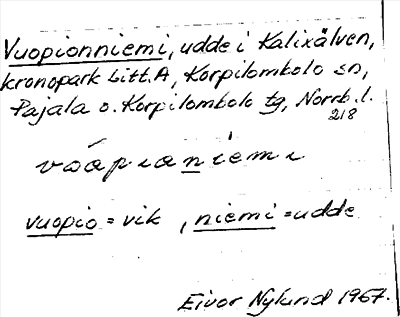 Vuopionniemi, udde i Kalixälven,
kronopark Litt. A, Korpilombolo sn,
Pajala o. Korpilombolo tg, Norrb. l.
218
vօápianiemi
vuopio = vik, niemi = udde
Eivor Nylund 1967.